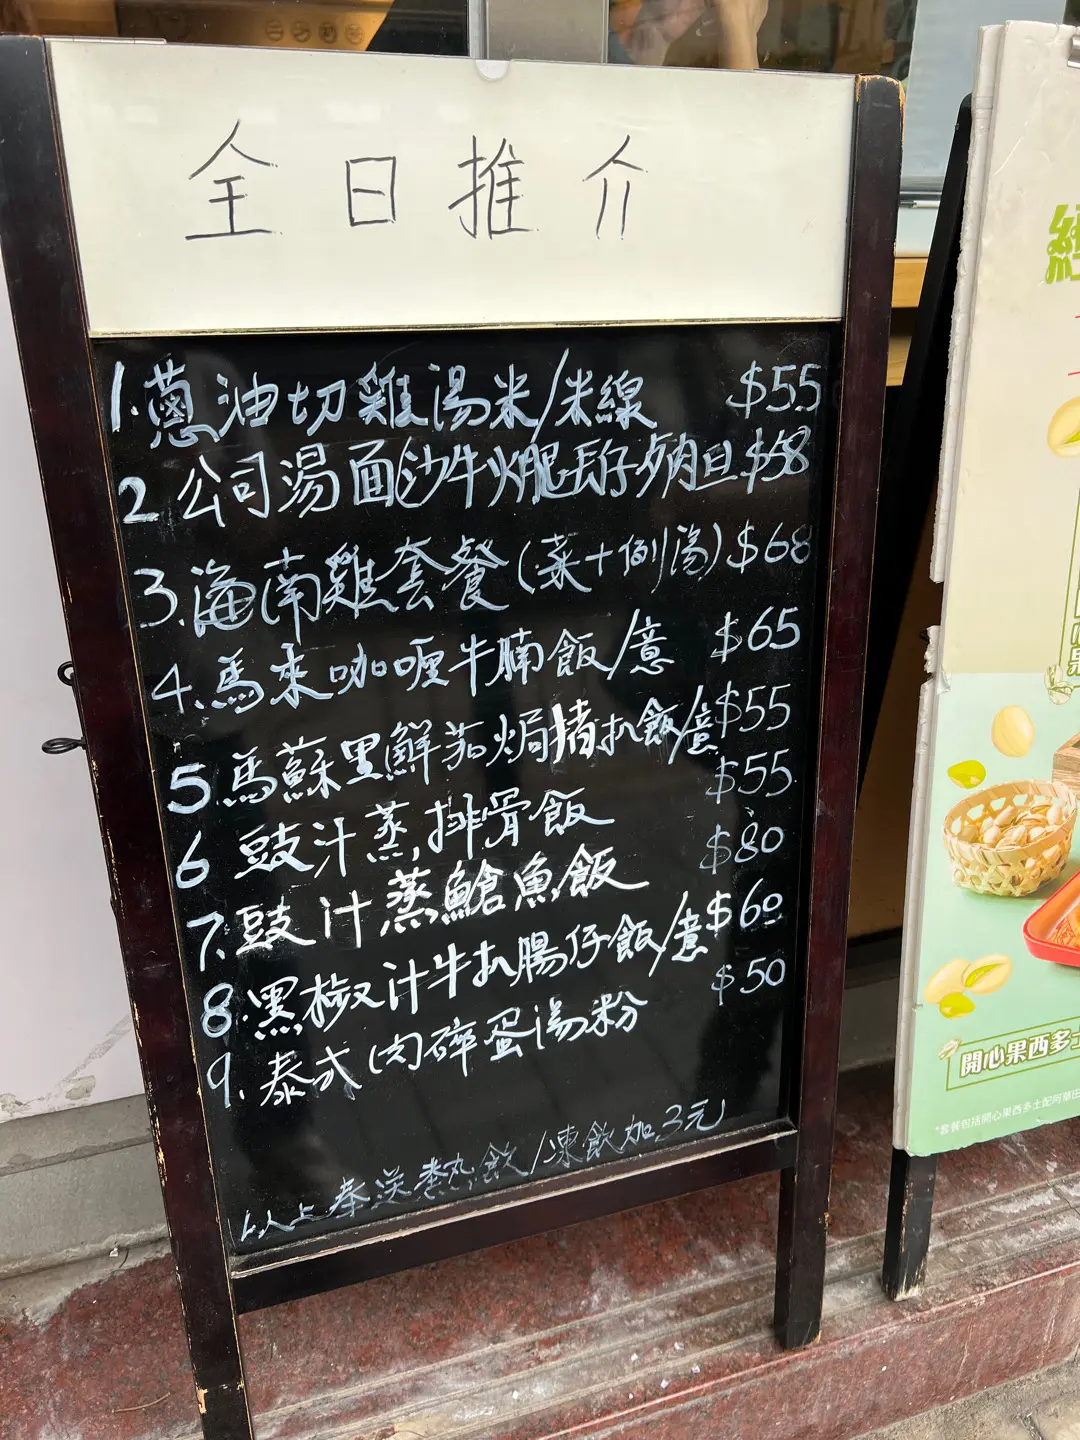 全日推介
1.蔥油切雞湯米/米線 $55
2 公司湯面 沙牛 仔 肉旦 $58
3.海南雞套餐(菜+例湯) $68
4.馬來咖喱牛腩飯/意 $65
5 馬蘇里鮮茄焗豬扒飯/意 $55
6 豉汁蒸排骨飯 $55
7.豉汁蒸鱠魚飯 $80
8.黑椒汁牛扒腸仔飯/意 $60
9.泰式肉碎蛋湯粉 $50
以上奉送熱飲/凍飲加3元
開心果西多士
*套餐包括開心果西多士配阿華田